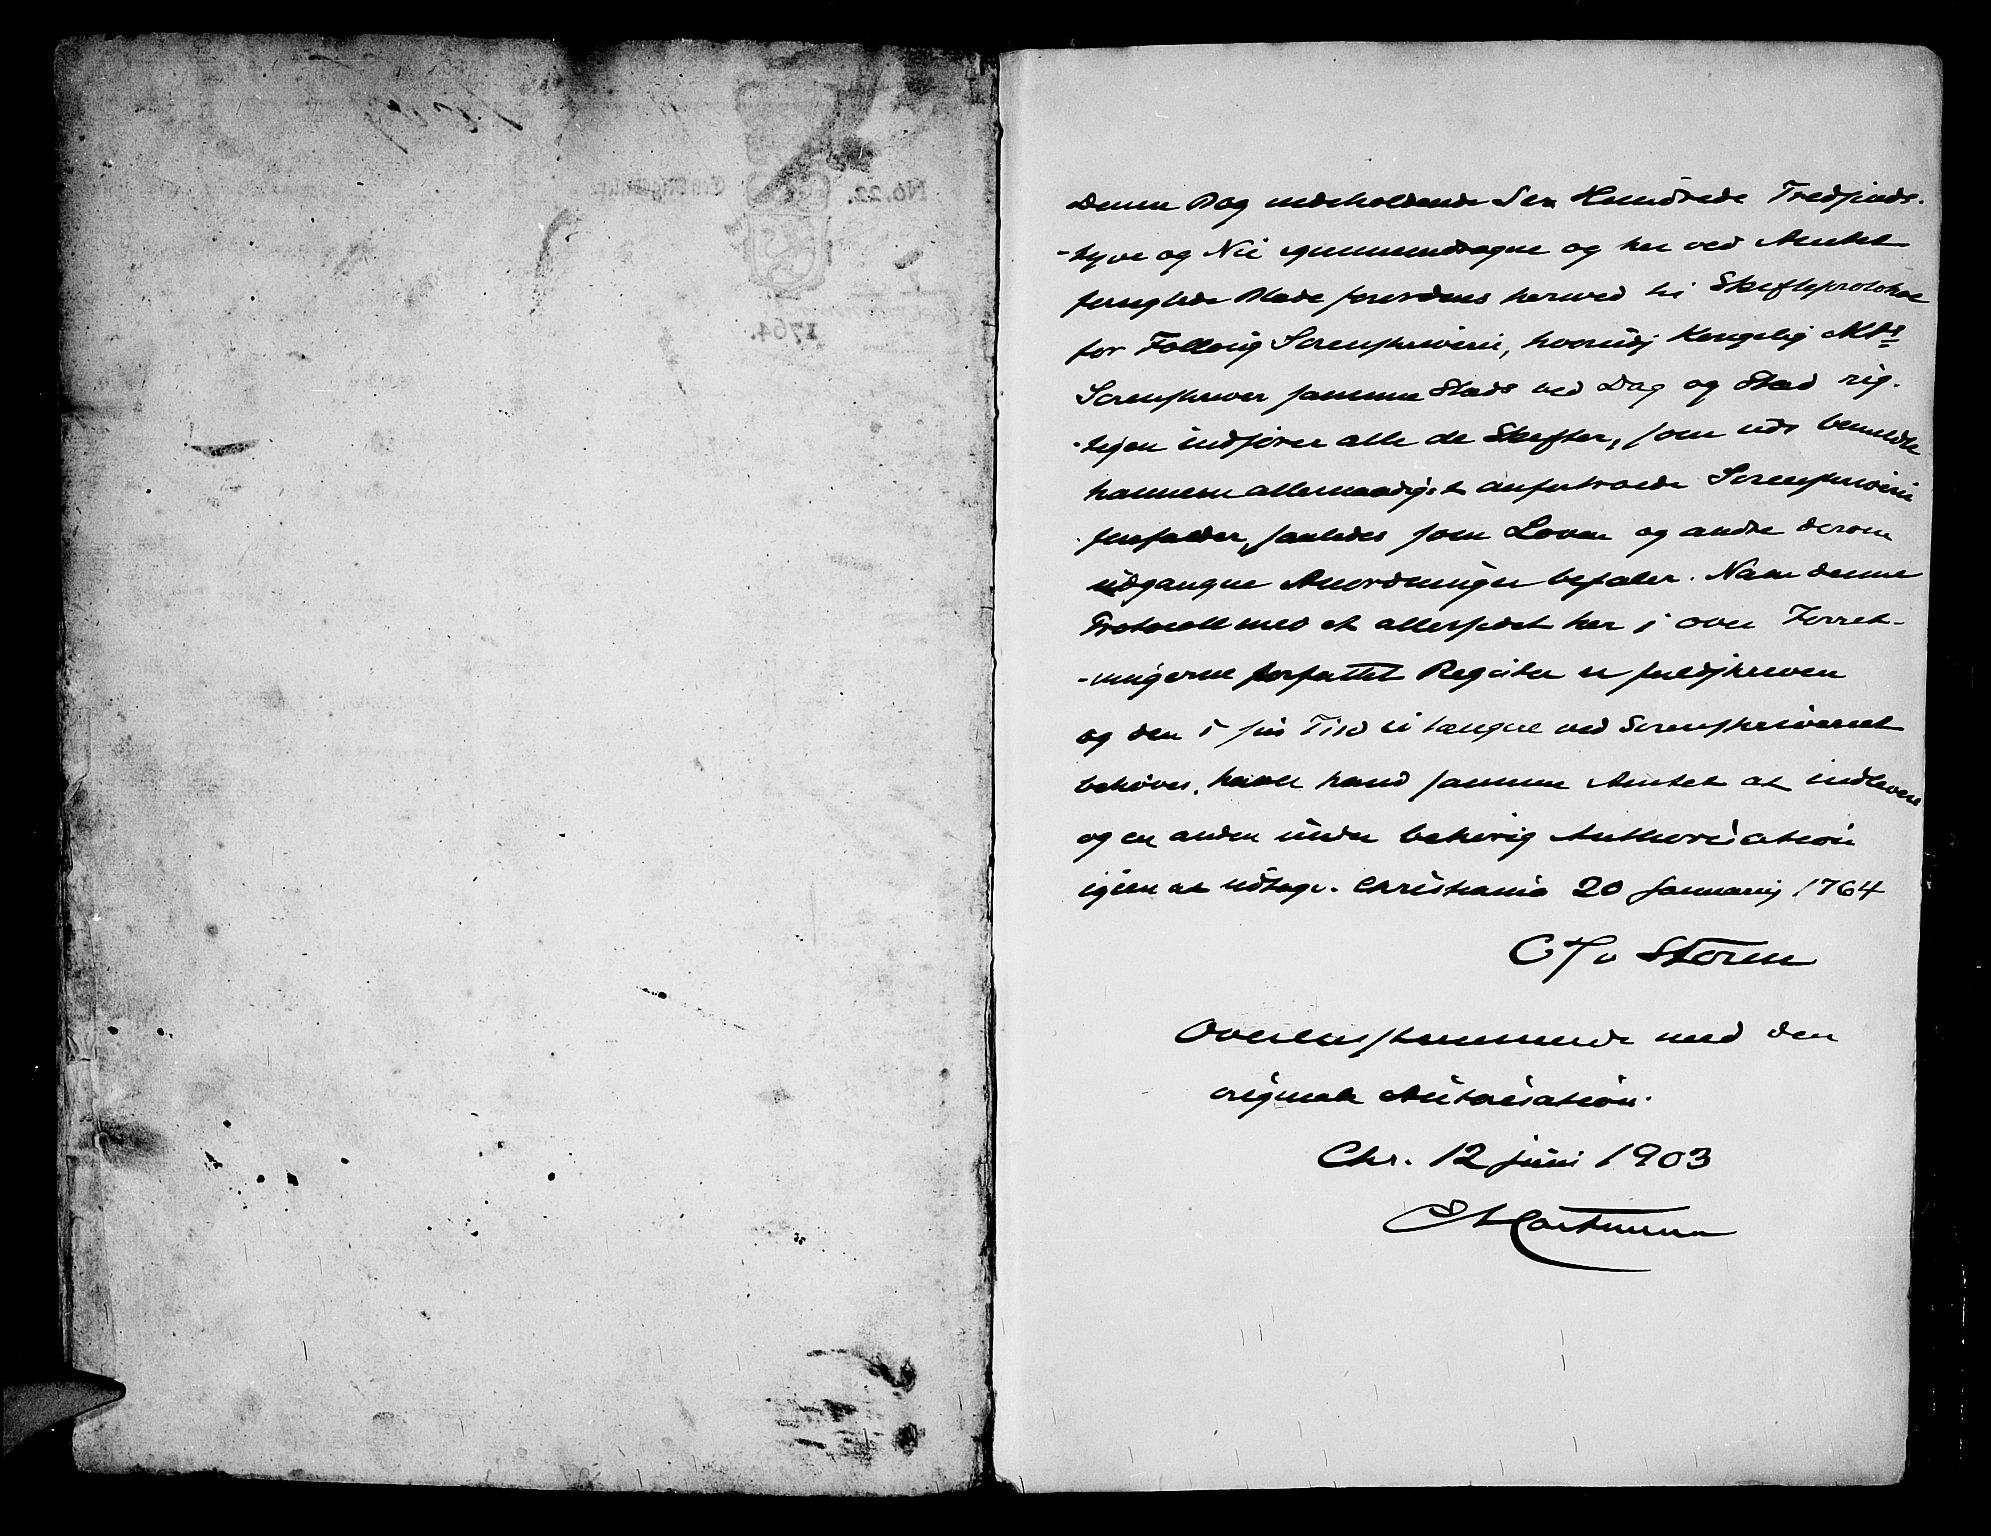 No. 22.
1764.
Denne Bog indeholdende Sex Hundrede Tredsinds-
-tyve og Nie igiennemdragne og her ved Amtet
forseglede Blade forordnes herved til Skifteprotokol
for Folloug Sorenskriverie, hvorudj Kongelig Mts
Sorenskriver samme Steds ved Dag og Stad rig-
-tigen indfører alle de Skifter, som udi bemeldte
hannem allernaadigst anfortroede Sorenskriverie
forefalder, saaledes som Loven og andre derom
udgangne Anordninger befaler. Naar denne
Protocoll med et allersidst her i over Forret-
-ningerne forfattet Register er fuldskreven
og den i sin Tid ei længere ved Sorenskriveriet
behøves, haver hand samme Amtet at indlevere
og en anden under behørig Authorisation
igien at udtage. Christiania 20 Januarij 1764
Storm
Overensstemmende med den
originale Autorisation.
Chr. 12 juni 1903